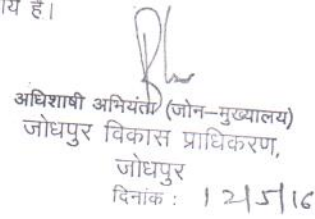 है।
अधिशाषी अभियंता (जोन–मुख्यालय)
जोधपुर विकास प्राधिकरण,
जोधपुर
दिनांक : 12/5/16